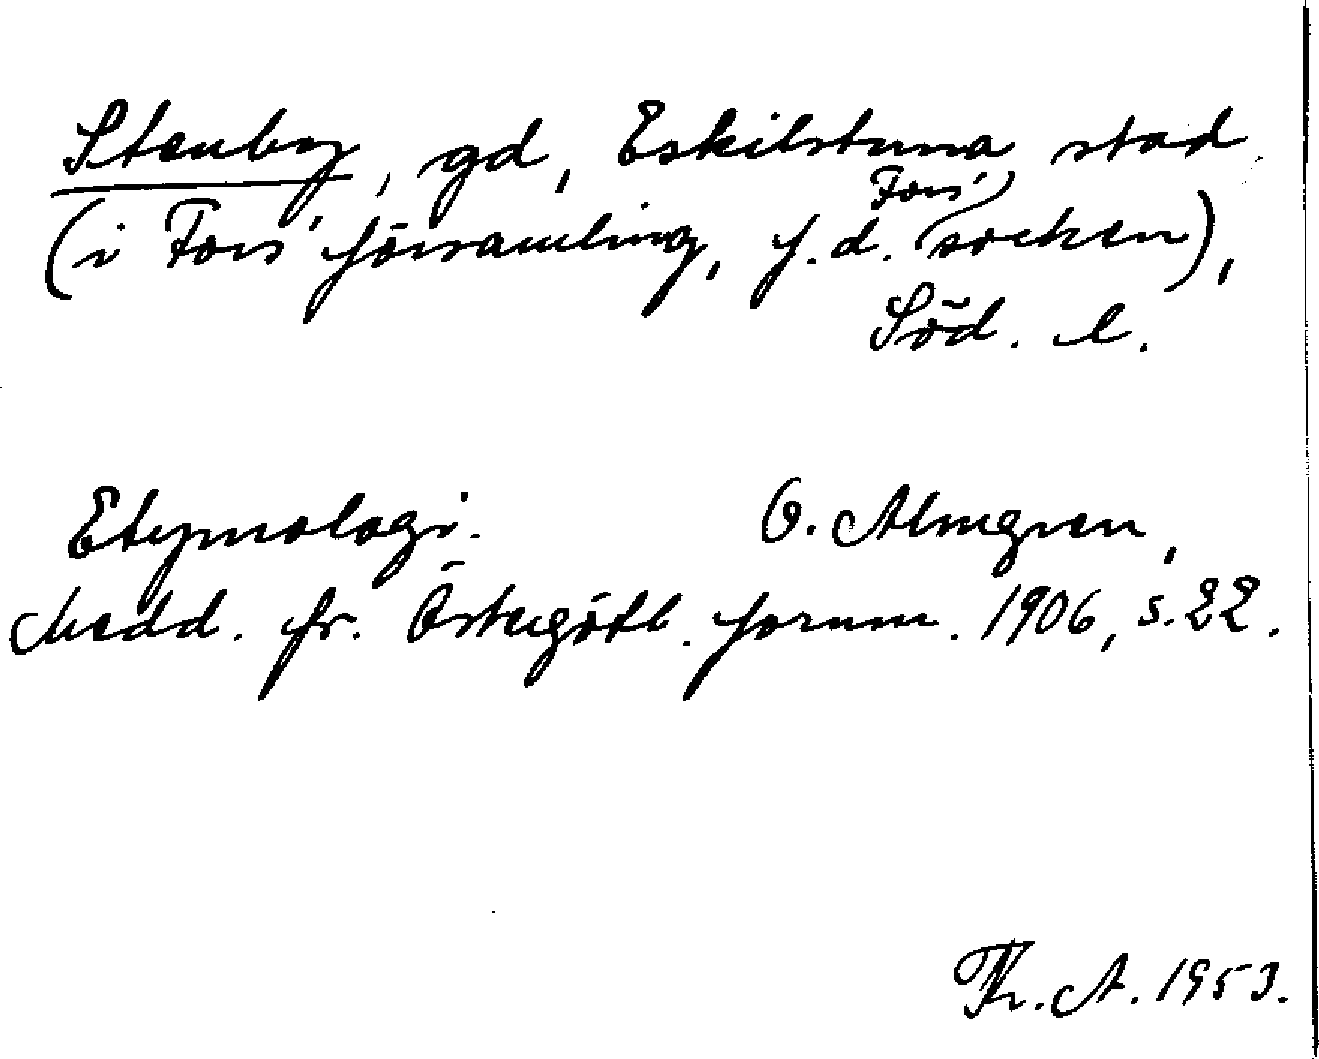 Stenby, gd, Eskilstuna stad
(i Fors' församling, f.d. Fors' socken),
Söd. l.
Etymologi. O. Almgren,
Medd. fr. Östergötl. fornm. 1906, s. 22.
Th. A. 1953.